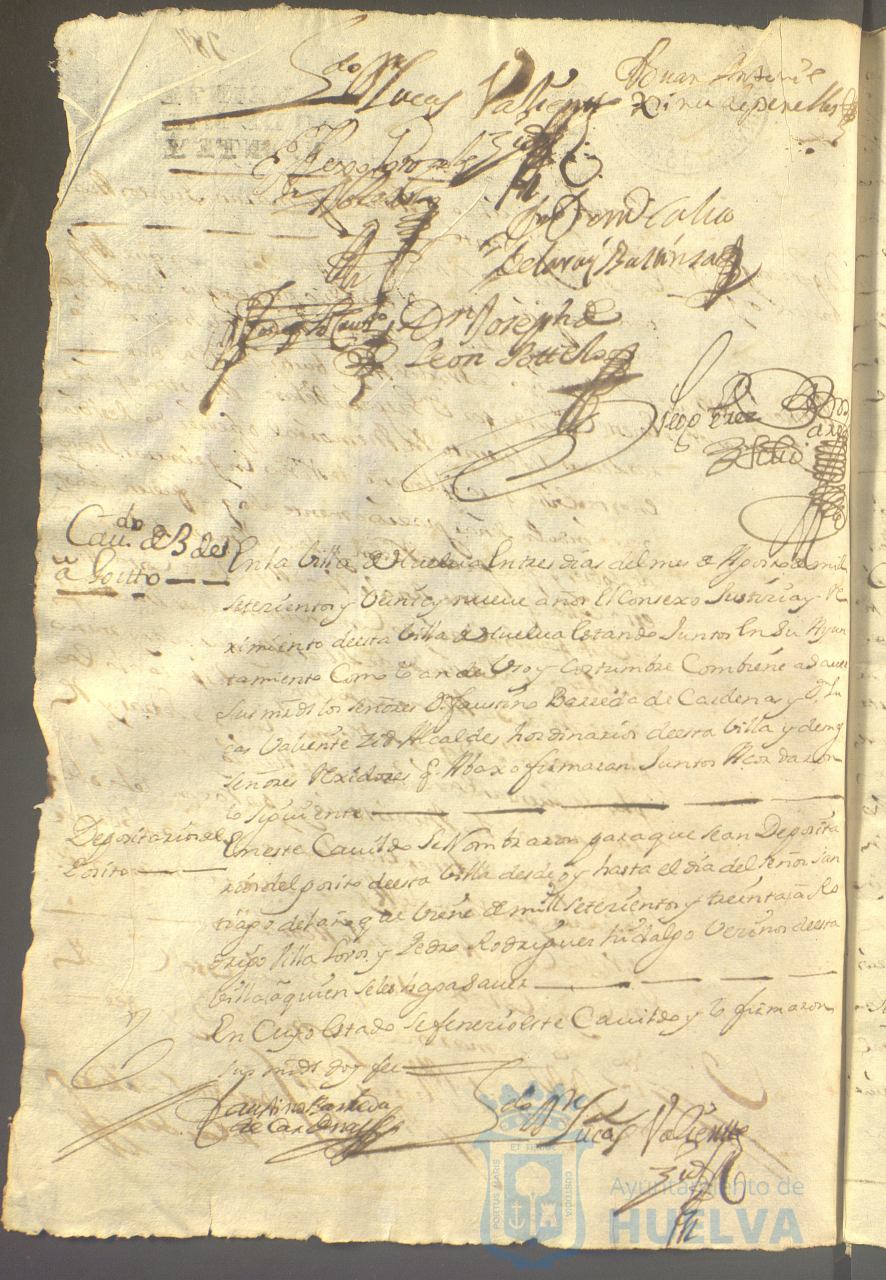 Ldo Dn Lucas Valiente
Zid
Juan Antonio
Dn Joseph de
Leon Bottello
Cavdo de 3 de
Agosto
En la Villa de Huelva En tres dias del mes de Agosto de mil
setecientos y Veinte y nueve años El Consexo Justicia y Re
ximiento de esta Villa de Huelva Estando Juntos En su Ayun
tamiento Como lo an de Uso y Costumbre Combiene a saver
Sus mrds los señores Dn Faustino Barreda de Cardenas y Dn Lu
cas Valiente Zid Alcaldes hordinarios de esta Villa y demas
señores Rexidores q Abaxo firmaran Juntos Acordaron
lo siguiente
Depositarios del
Posito
En este Cavildo se Nombraron para que sean Deposita
rios del posito de esta Villa desde oy hasta el dia del señor San
tiago del año que Viene de mill setecientos y treinta a Ro
drigo Villa Lovos y Pedro Rodrigues hidalgo Vecinos de esta
Villa a quien se les haga saver
En Cuyo Estado se fenecio este Cavildo y lo firmaron
sus mrds doy fee
Faustino Barreda
de Cardenas
Ldo Dn Lucas Valiente
Zid
PORTUS MARIS
ET TERRAE
CUSTODIA
Ayuntamiento de
HUELVA